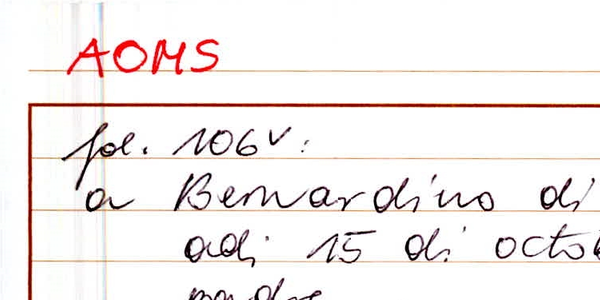 AOMS
fol. 106v:
a Bernardino di
adi 15 di octob